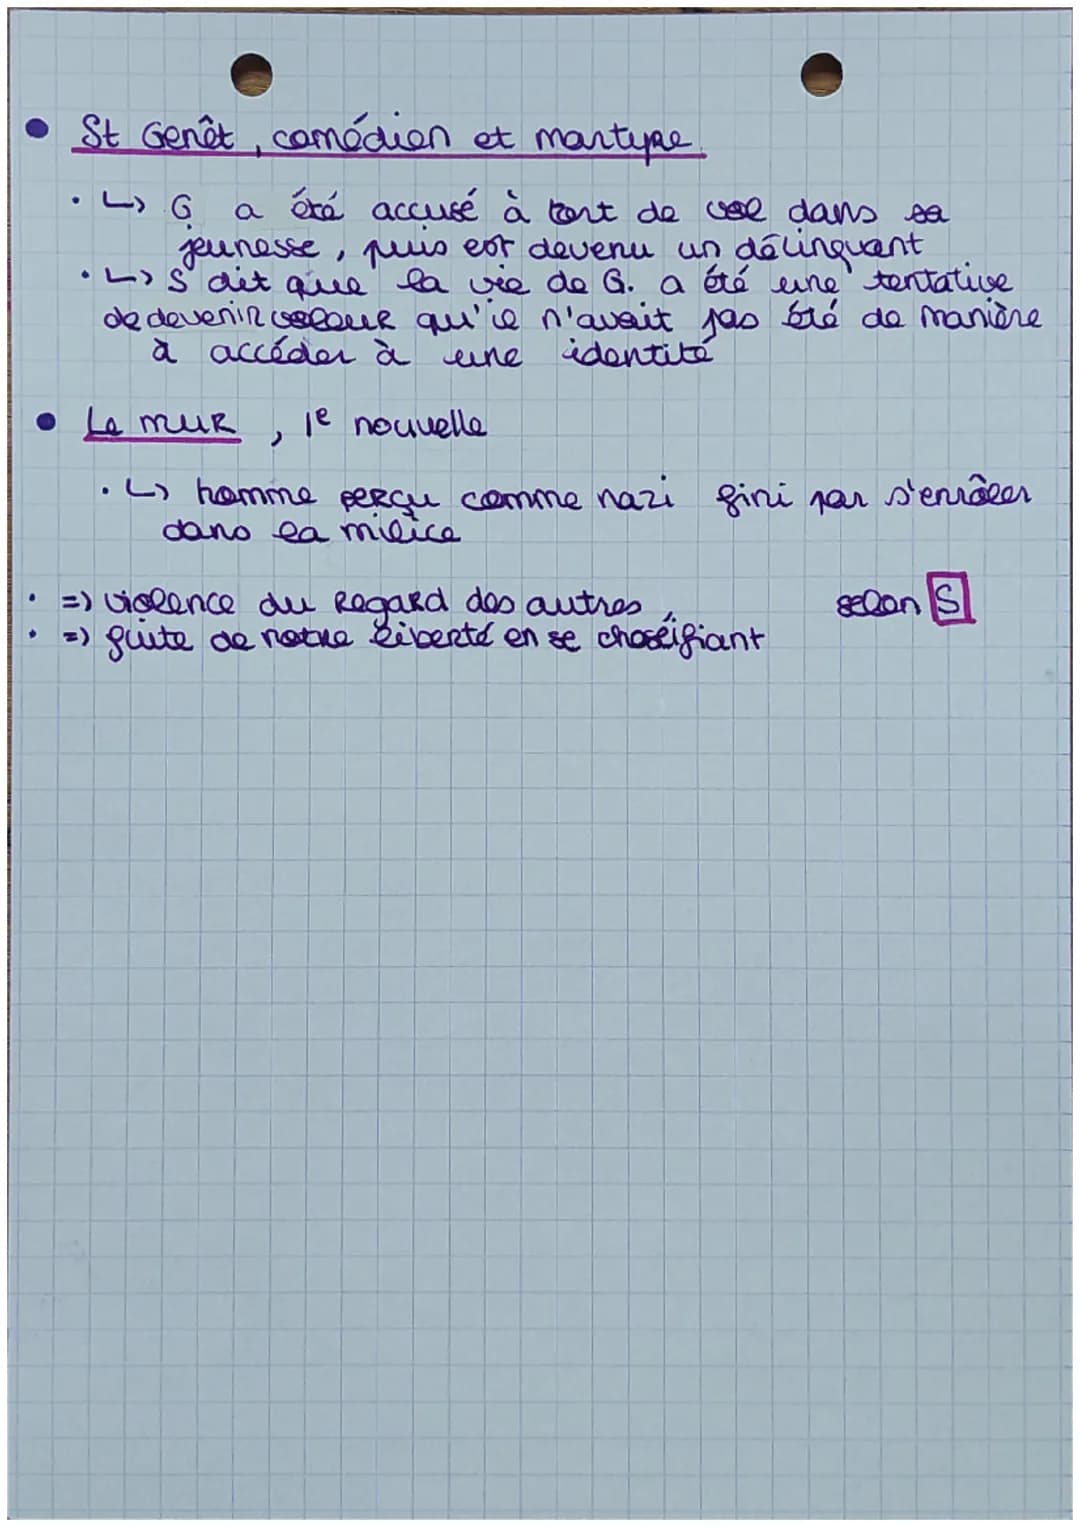 • St Genêt, comédien et martyre.
· ↳ G a été accusé à tort de vol dans sa
jeunesse, puis est devenu un délinquant
· ↳ S dit que la vie de G. a été une tentative
de devenir voleur qu'il n'avait pas été de manière
à accéder à une identité
• Le mur, 1e nouvelle
· ↳ homme perçu comme nazi fini par s'enrôler
dans la milice
· => violence du regard des autres, selon S
· => fuite de notre liberté en se choséifiant